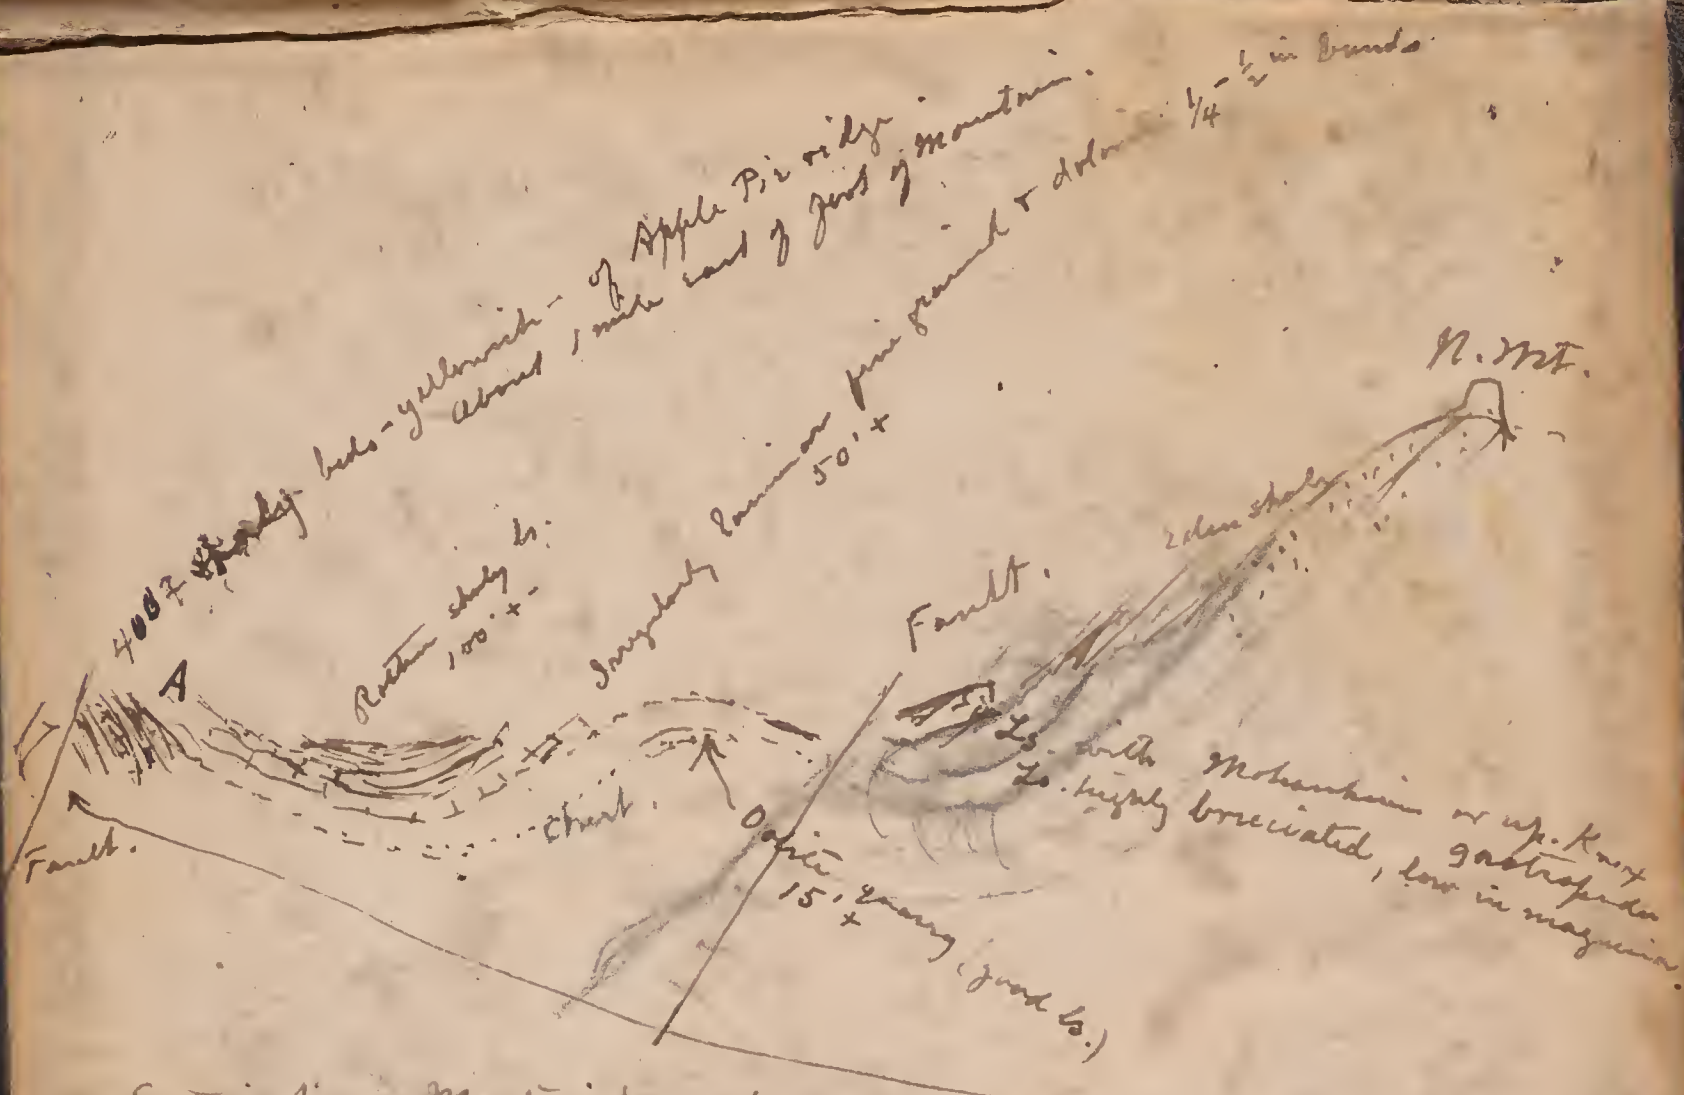 400± shaly beds - yellowish - of Apple Pie ridge
about 1 mile east of foot of Mountain.
Irregularly laminar fine grained & dolom 1/4 - 1/2 in bands
50'±
N. Mt.
Eden shale
Fault.
Rotten shaly ls.
100'±
A
Ls. with or up. Knox
gastropods
Ls. highly brecciated, low in magnesia.
Chert.
Oolite Quarry (good ls.)
15'±
Fault.